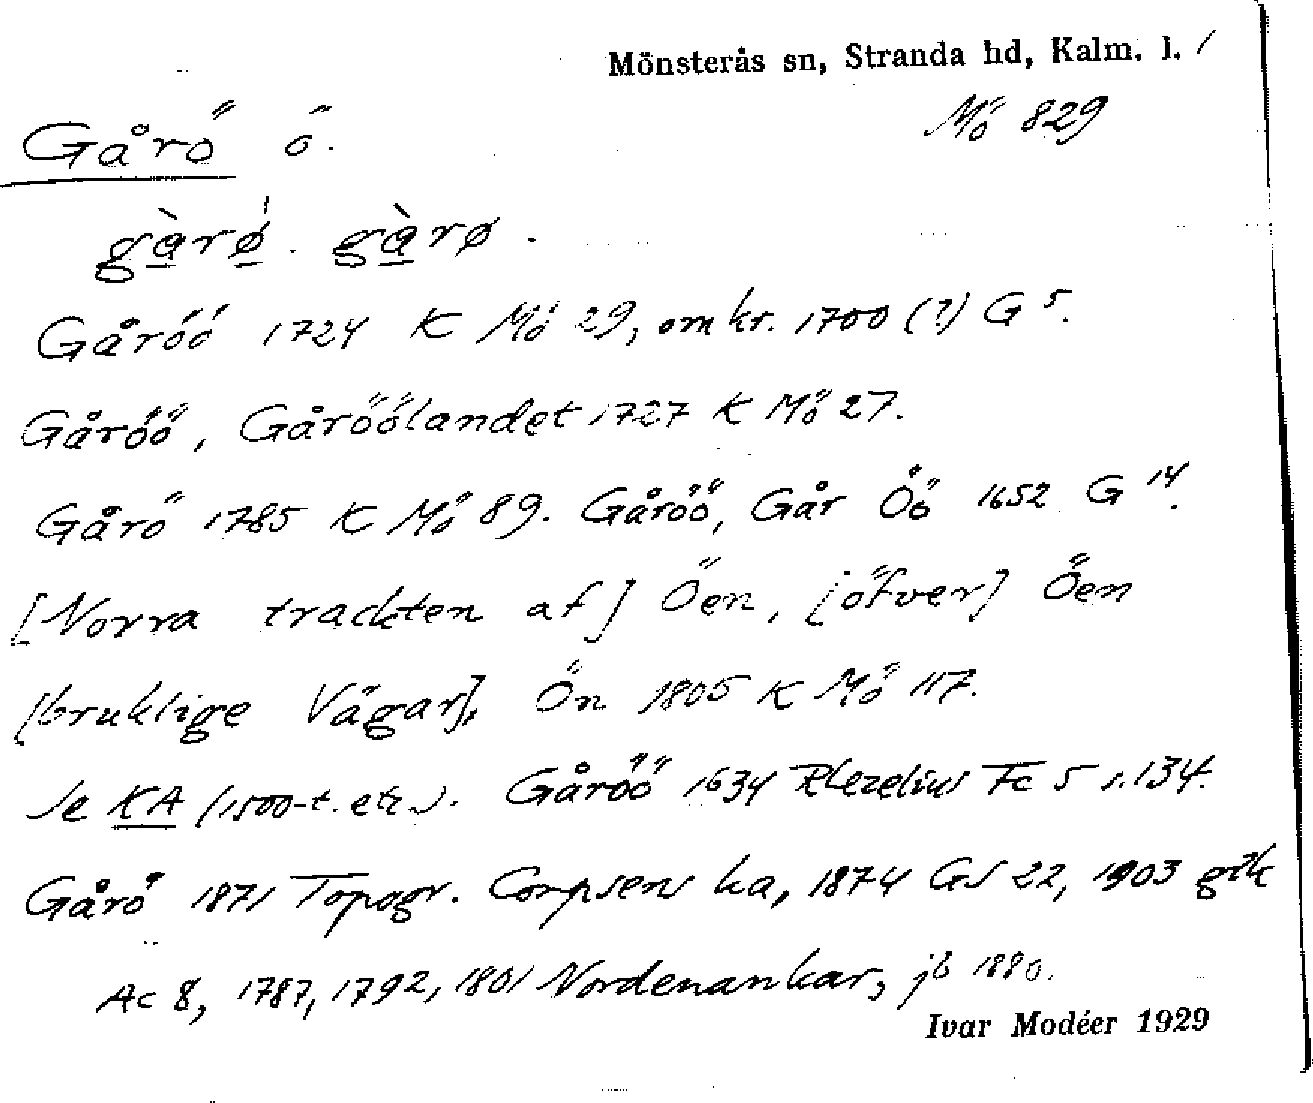 Mönsterås sn, Stranda hd, Kalm. l.
Mö 829
Gårö ö.
gàrǿ. gàrø.
Gåröö 1724 K Mö 29, omkr. 1700 (?) G 5.
Gåröö, Gåröölandet 1727 K Mö 27.
Gårö 1785 K Mö 89. Gåröö, Går Öö 1652 G 14.
[Norra trackten af] Öen, [öfver] Öen
[bruklige Vägar], Ön 1805 K Mö 117.
Se KA (1500-t. etc.). Gåröö 1634 Rhezelius Fc 5 s. 134.
Gårö 1871 Topogr. Corpsens ka, 1874 GS 22, 1903 gfk
Ac 8, 1787, 1792, 1801 Nordenankar, jb 1880.
Ivar Modéer 1929